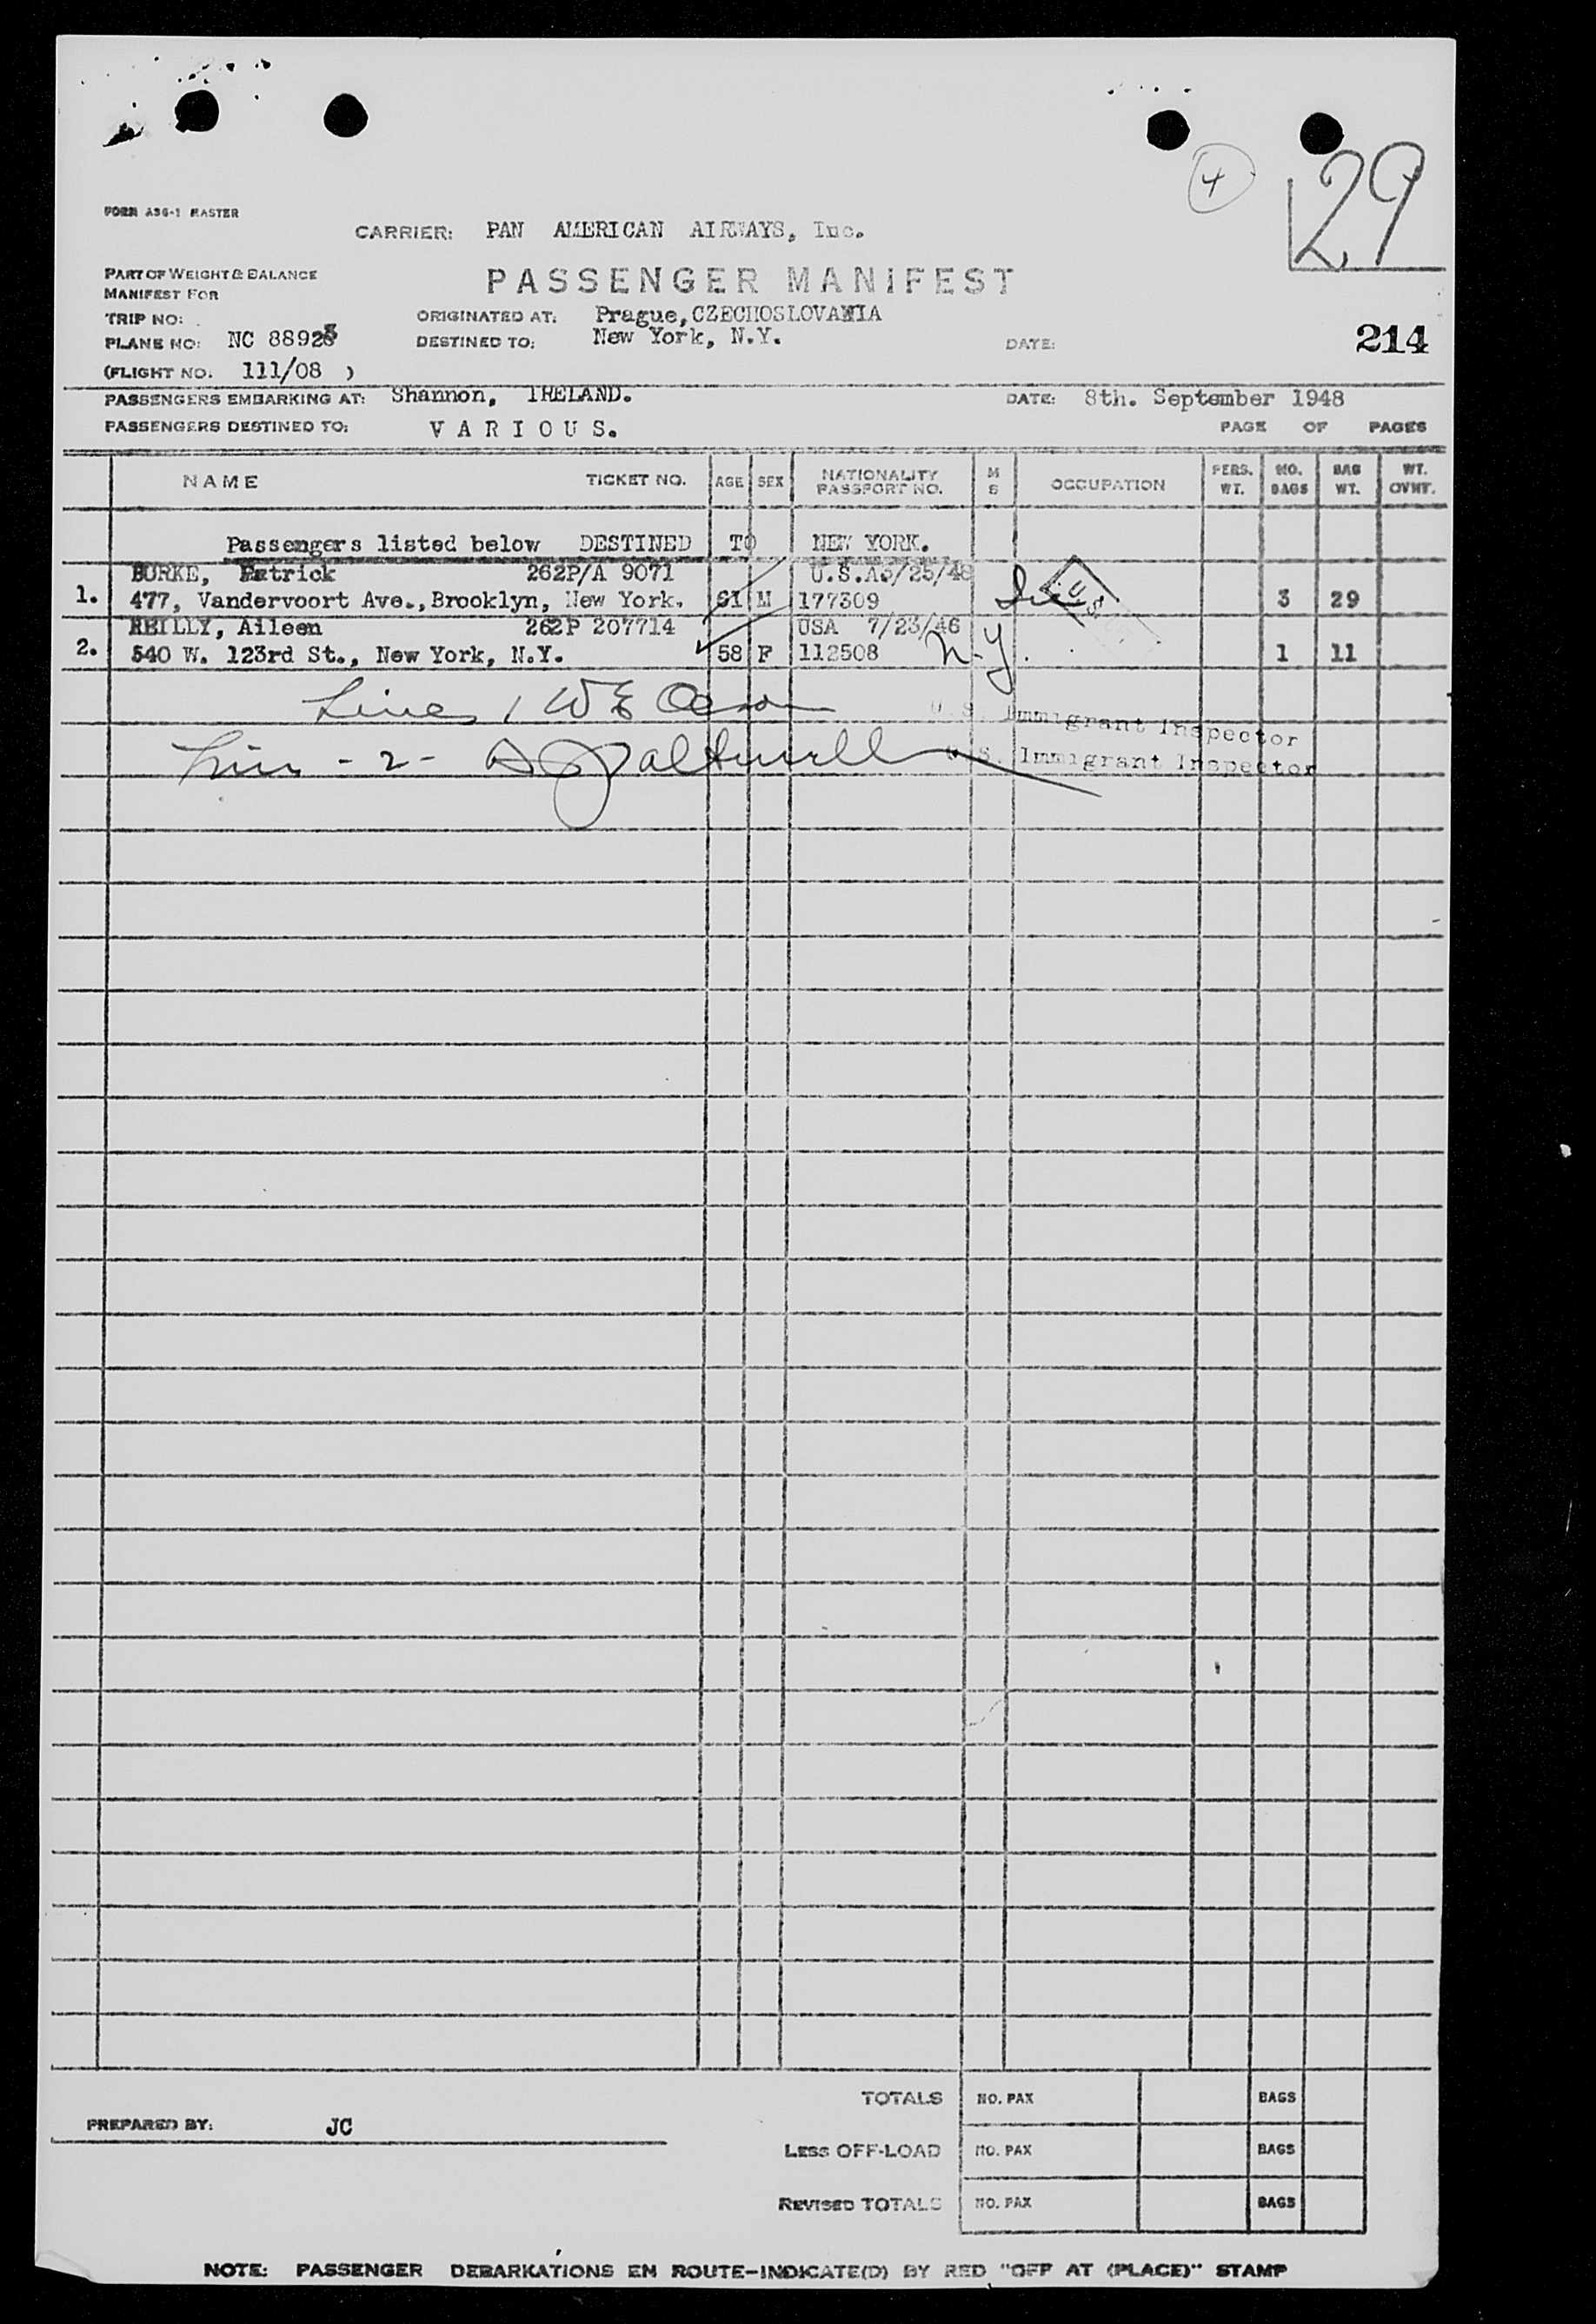 4
29
FORM A36-1 MASTER
CARRIER: PAN AMERICAN AIRWAYS, Inc.
PART OF WEIGHT & BALANCE
MANIFEST FOR
PASSENGER MANIFEST
TRIP NO:
ORIGINATED AT: Prague, CZECHOSLOVAKIA
PLANE NO: NC 88923
DESTINED TO: New York, N.Y.
DATE:
214
(FLIGHT NO. 111/08 )
PASSENGERS EMBARKING AT: Shannon, IRELAND.
DATE: 8th. September 1948
PASSENGERS DESTINED TO: V A R I O U S.
PAGE OF PAGES
NAME TICKET NO. AGE SEX NATIONALITY PASSPORT NO. M S OCCUPATION PERS. WT. NO. BAGS BAG WT. WT. OVWT.
Passengers listed below DESTINED TO NEW YORK.
BURKE, Patrick 262P/A 9071 U.S.A
1. 477, Vandervoort Ave., Brooklyn, New York. 61 M 177309 3 29
REILLY, Aileen 262P 207714 USA 7/23/46
2. 540 W. 123rd St., New York, N.Y. 58 F 112508 N.Y. 1 11
Line 1
U.S. Immigrant Inspector
Line - 2 -
U.S. Immigrant Inspector
TOTALS NO. PAX BAGS
PREPARED BY: JC
LESS OFF-LOAD NO. PAX BAGS
REVISED TOTALS NO. PAX BAGS
NOTE: PASSENGER DEBARKATIONS EN ROUTE-INDICATE(D) BY RED "OFF AT (PLACE)" STAMP